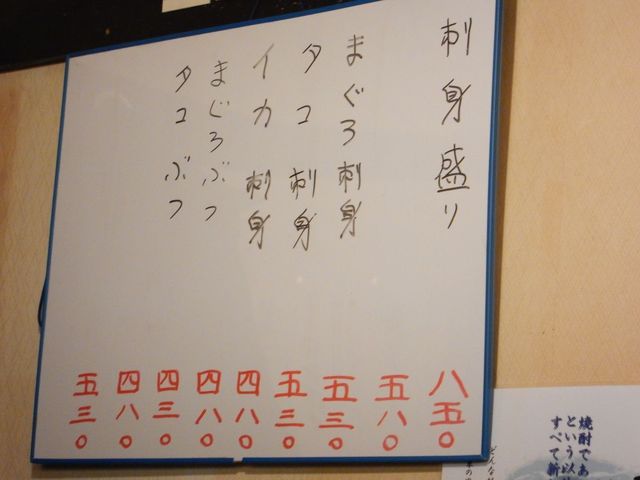 刺身盛り
まぐろ刺身
タコ刺身
イカ刺身
まぐろぶつ
タコぶつ
八五〇
五八〇
五三〇
五三〇
四八〇
四八〇
四三〇
四八〇
五三〇
焼酎であ
という以
すべて新
どんな